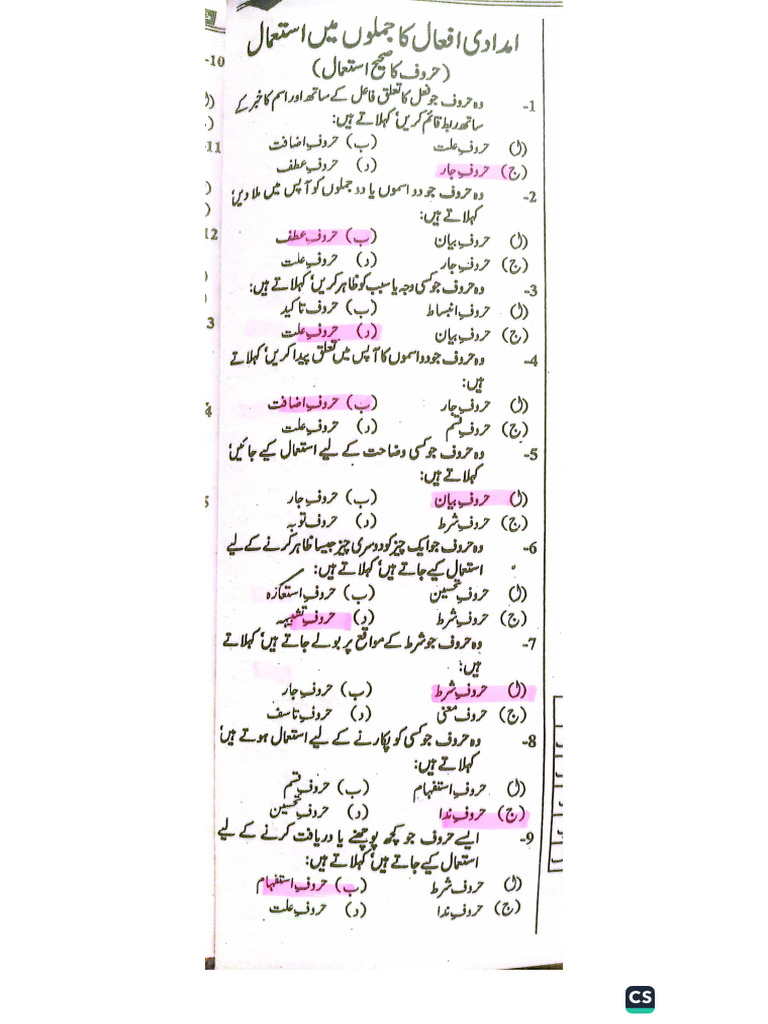 امدادی افعال کا جملوں میں استعمال
(حروف کا صحیح استعمال)
1- وہ حروف جو فعل کا تعلق فاعل کے ساتھ اور اسم کا خبر کے
ساتھ ربط قائم کریں، کہلاتے ہیں:
(ا) حروفِ علت (ب) حروف اضافت
(ج) حروفِ جار (د) حروفِ عطف
2- وہ حروف جو دو اسموں یا دو جملوں کو آپس میں ملا دیں،
کہلاتے ہیں:
(ا) حروفِ بیان (ب) حروفِ عطف
(ج) حروفِ جار (د) حروفِ علت
3- وہ حروف جو کسی وجہ یا سبب کو ظاہر کریں، کہلاتے ہیں:
(ا) حروفِ انبساط (ب) حروف تاکید
(ج) حروفِ بیان (د) حروفِ علت
4- وہ حروف جو دو اسموں کا آپس میں تعلق پیدا کریں، کہلاتے
ہیں:
(ا) حروفِ جار (ب) حروفِ اضافت
(ج) حروفِ قسم (د) حروفِ علت
5- وہ حروف جو کسی وضاحت کے لیے استعمال کیے جائیں،
کہلاتے ہیں:
(ا) حروفِ بیان (ب) حروفِ جار
(ج) حروفِ شرط (د) حروف توبہ
6- وہ حروف جو ایک چیز کو دوسری چیز جیسا ظاہر کرنے کے لیے
استعمال کیے جاتے ہیں، کہلاتے ہیں:
(ا) حروفِ تحسین (ب) حروفِ استعارہ
(ج) حروفِ شرط (د) حروفِ تشبیہہ
7- وہ حروف جو شرط کے مواقع پر بولے جاتے ہیں، کہلاتے
ہیں:
(ا) حروفِ شرط (ب) حروفِ جار
(ج) حروف معنی (د) حروفِ تاسف
8- وہ حروف جو کسی کو پکارنے کے لیے استعمال ہوتے ہیں،
کہلاتے ہیں:
(ا) حروفِ استفہام (ب) حروفِ قسم
(ج) حروفِ ندا (د) حروفِ تحسین
9- ایسے حروف جو کچھ پوچھنے یا دریافت کرنے کے لیے
استعمال کیے جاتے ہیں، کہلاتے ہیں:
(ا) حروف شرط (ب) حروفِ استفہام
(ج) حروفِ ندا (د) حروفِ علت
-10
-11
12
3
4
5
CS